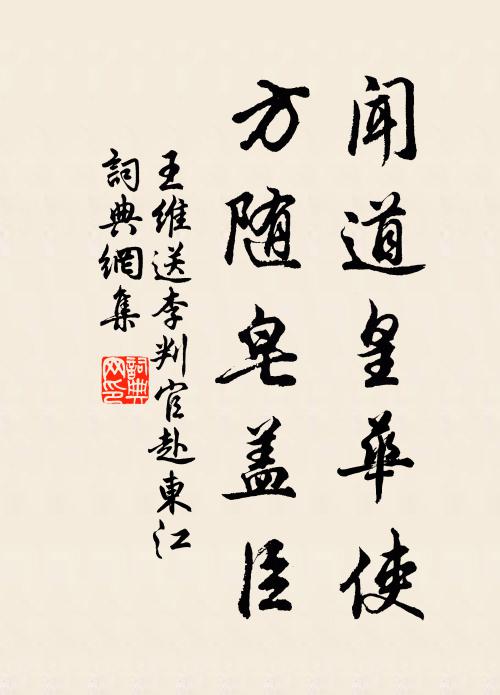 闻道皇華使
方随皂盖臣
王維送李判官赴東江
詞典網集
詞典網印